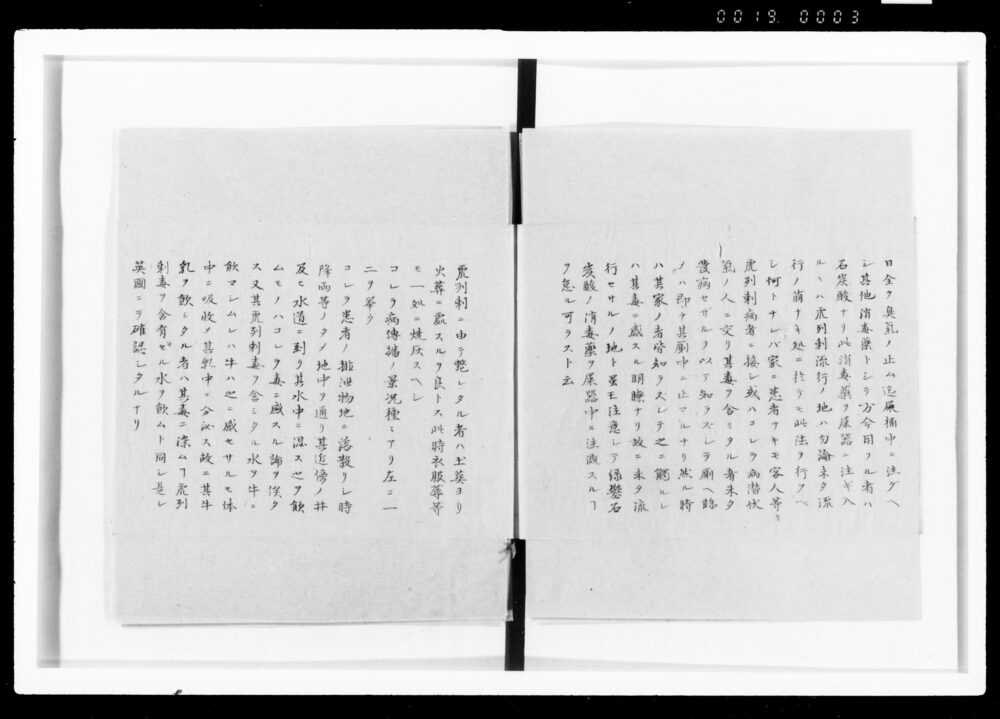 0019 0003
日全ク臭氣ノ止ム迄屎桶中ニ注グヘ
シ其他消毒藥トシテ方今用フル者ハ
石炭酸ナリ此消毒藥ヲ屎器ニ注ギ入
ルヽハ虎列剌流行ノ地ハ勿論未タ流
行ノ萠ナキ処ニ於テモ此法ヲ行フヘ
シ何トナレバ家ニ患者ナキモ客人等ニ
虎列剌病者ニ接シ或ハコレラ病潜伏
氣ノ人ニ交リ其毒ヲ含ミタル者未タ
發病セザルヲ以テ知ラズシテ厠ヘ臨
ノハ即チ其厠中ニ止マルナリ然ル時
ハ其家ノ者皆知ラスシテ之ニ觸ルレ
ハ其毒ニ感スル明瞭ナリ故ニ未タ流
行セサルノ地ト虽モ注意シテ緑礬石
炭酸ノ消毒藥ヲ屎器中ニ注漑スルヿ
ヲ怠ル可ラスト云
虎列剌ニ由テ斃レタル者ハ土葬ヨリ
火葬ニ處スルヲ良トス此時衣服蓐等
モ一処ニ燒灰スヘシ
コレラ病傳播ノ景況種々アリ左ニ一
二ヲ挙ク
コレラ患者ノ排泄物地ニ落散リシ時
降雨等ノタメ地中ヲ通リ其近傍ノ井
及ヒ水道ニ到リ其水中ニ混ス之ヲ飲
ムモノハコレラ毒ニ感スル論ヲ俟タ
ス又其虎列剌毒ヲ含ミタル水ヲ牛ニ
飲マシムレハ牛ハ之ニ感セサルモ体
中ニ吸收メ其乳中ニ分泌ス故ニ其牛
乳ヲ飲ミタル者ハ其毒ニ染ムヿ虎列
剌毒ヲ含有セル水ヲ飲ムト同シ是レ
英國ニテ確認シタルナリ